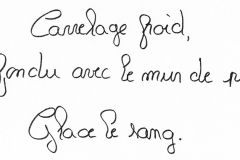 Carrelage froid,
fondu avec le mur de
Glace le sang.